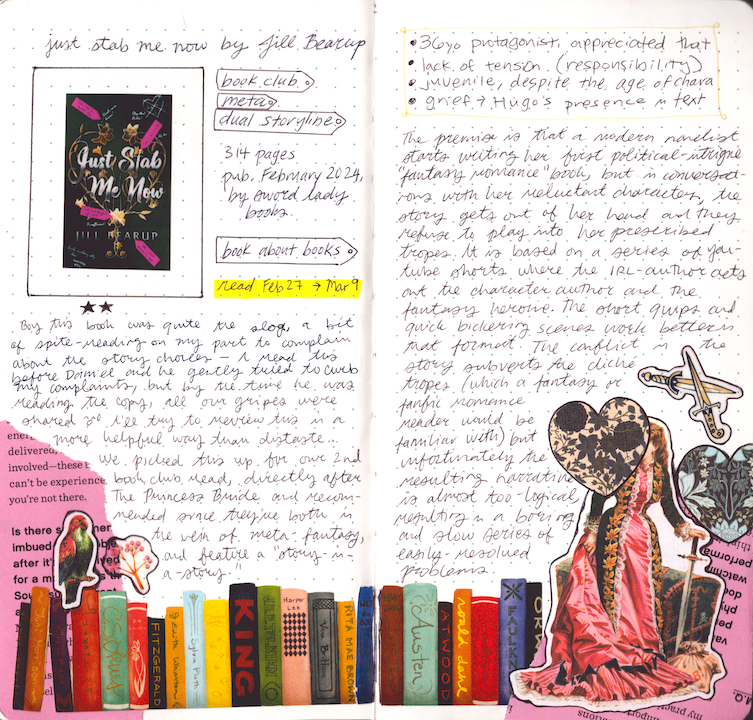 just stab me now by Jill Bearup
Just Stab
Me Now
JILL BEARUP
book club
meta
dual storyline
314 pages
pub. February 2024,
by sword lady
books.
book about books
read Feb 27 → Mar 9
★★
Boy this book was quite the slog, a bit
of spite-reading on my part to complain
about the story choices — I read this
before Daniel and he gently tried to curb
my complaints, but by the time he was
reading the copy, all our gripes were
shared so I'll try to review this in a
more helpful way than distaste...
We picked this up for our 2nd
book club read, directly after
The Princess Bride, and recom-
mended since they've both in
the vein of meta-fantasy,
and feature a "story-in-
a-story."
delivered
involved—these
can't be experience
you're not there.
Is there
imbued
after it
for a
KING
FITZGERALD
Edith Wharton
Sylvia Plath
Harper
Lee
RITA MAE BROWN
• 36yo protagonist, appreciated that
• lack of tension (responsibility)
• juvenile, despite the age of chara
• grief → Hugo's presence in text
The premise is that a modern novelist
starts writing her first political-intrigue
"fantasy romance" book, but in conversat-
ions with her reluctant character, the
story gets out of her hand and they
refuse to play into her prescribed
tropes. It is based on a series of you-
tube shorts where the IRL-author acts
out the character author and the
fantasy heroine. The short quips and
quick bickering scenes work better in
that format. The conflict in the
story subverts the cliché
tropes (which a fantasy or
fanfic romance
reader would be
familiar with) but
unfortunately the
resulting narrative
is almost too-logical,
resulting in a boring
and slow series of
easily-resolved
problems.
Austen
ATWOOD
FAULKN
performa
watchin